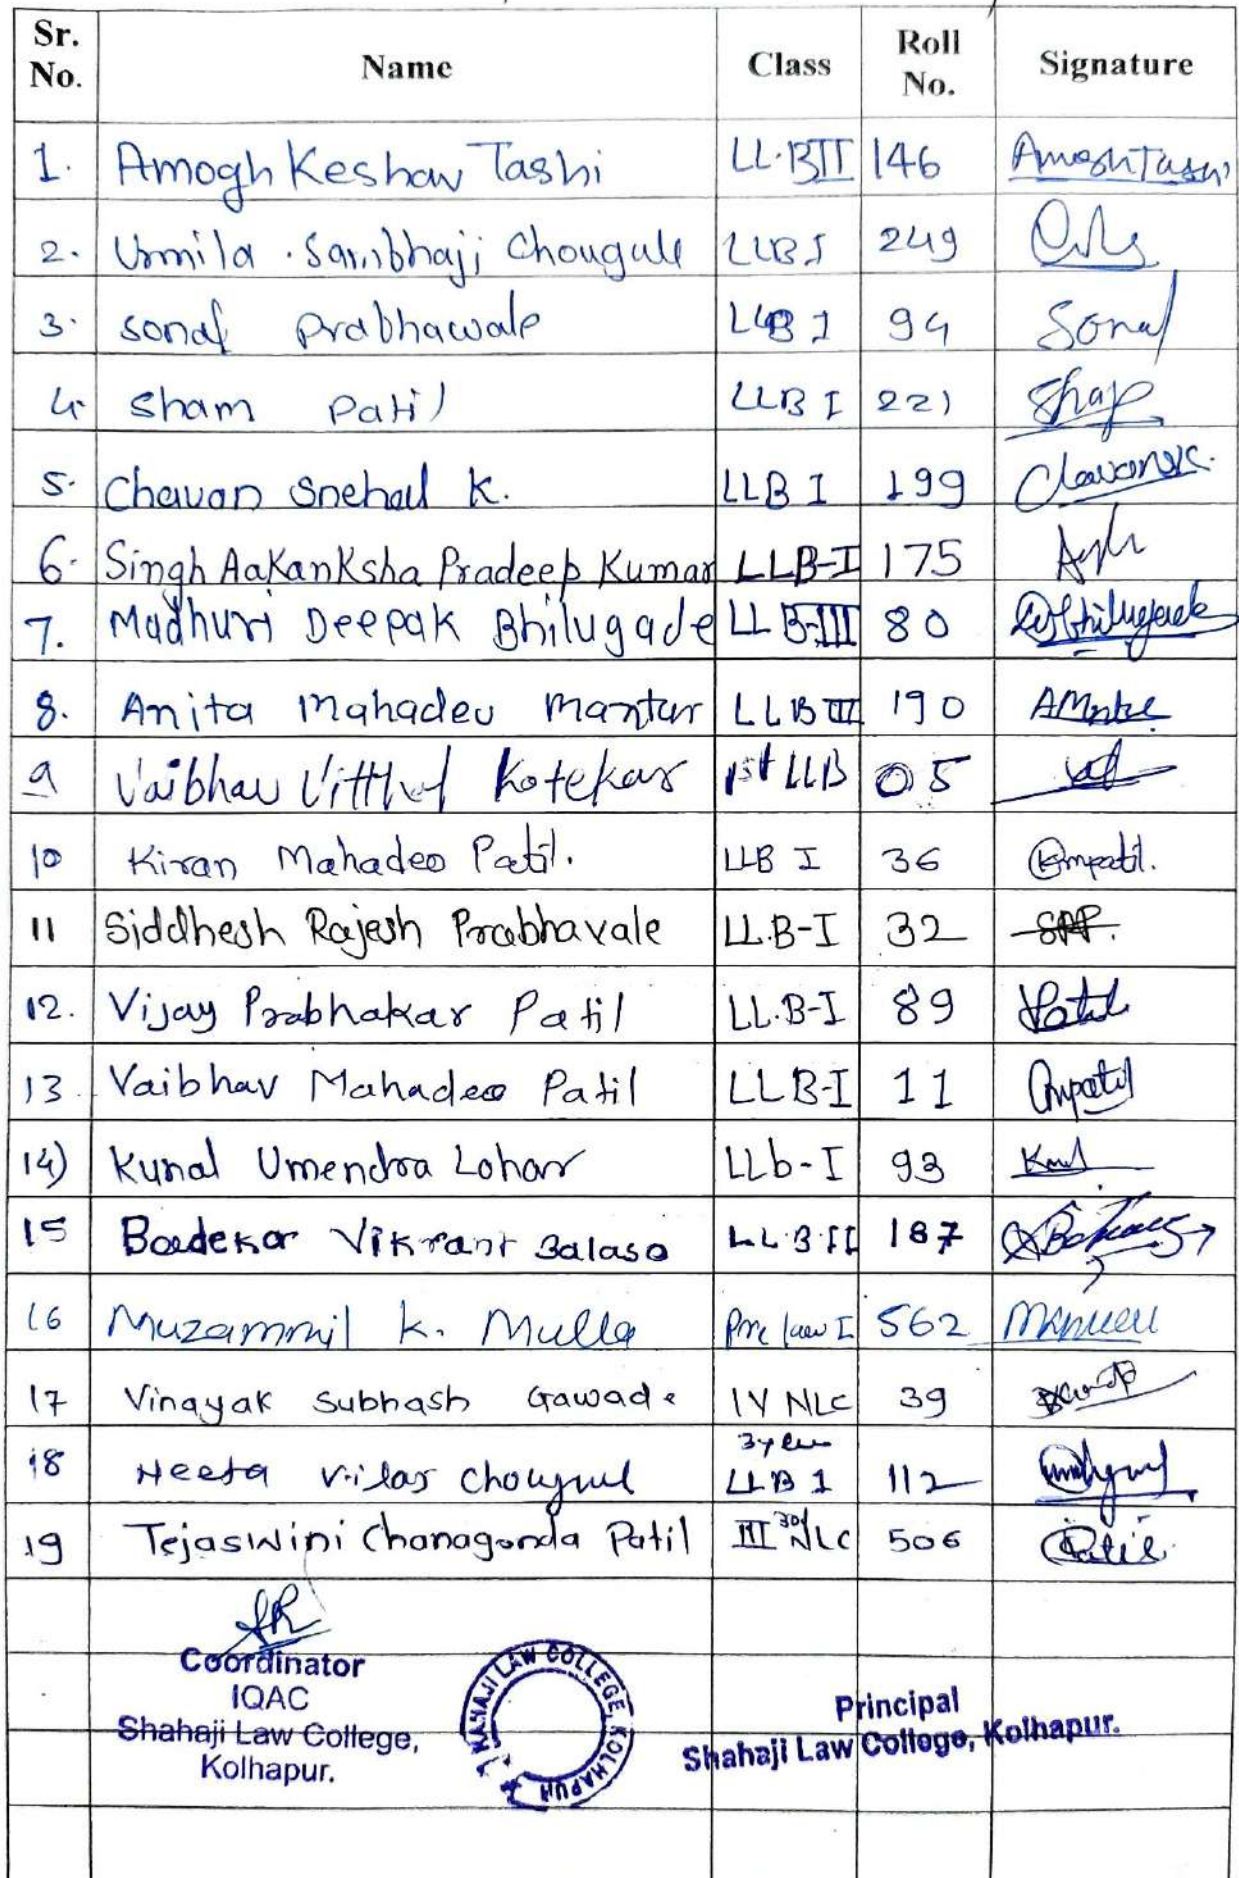 Sr. No. Name Class Roll No. Signature
1. Amogh Keshav Tashi LL.BII 146 Amogh Tashi
2. Urmila . Sambhaji Chougule LLB I 249
3. Sonal Prabhawale LLB I 94 Sonal
4. Sham Patil LLB I 221
5. Chavan Snehal K. LLB I 199 Chavansk.
6. Singh Aakanksha Pradeep Kumar LLB-I 175
7. Madhuri Deepak Bhilugade LLB-III 80
8. Anita Mahadev Mantur LLB III 190
9 Vaibhav Vitthal Kotekar 1st LLB 05
10 Kiran Mahadeo Patil. LLB I 36 Kmpatil.
11 Siddhesh Rajesh Prabhavale LL.B-I 32 SRP.
12. Vijay Prabhakar Patil LL.B-I 89 Patil
13. Vaibhav Mahadeo Patil LLB-I 11
14) Kunal Umendra Lohar LLb-I 93
15 Badekar Vikrant Balaso LL.B II 187
16 Muzammil K. Mulla Pre law I 562
17 Vinayak Subhash Gawade IV NLC 39
18 Neeta Vilas Chougul 3 year LLB 1 112
19 Tejaswini Chanagonda Patil III NLC 506 Patil
Coordinator
IQAC
Shahaji Law College,
Kolhapur.
SHAHAJI LAW COLLEGE, KOLHAPUR
Principal
Shahaji Law College, Kolhapur.